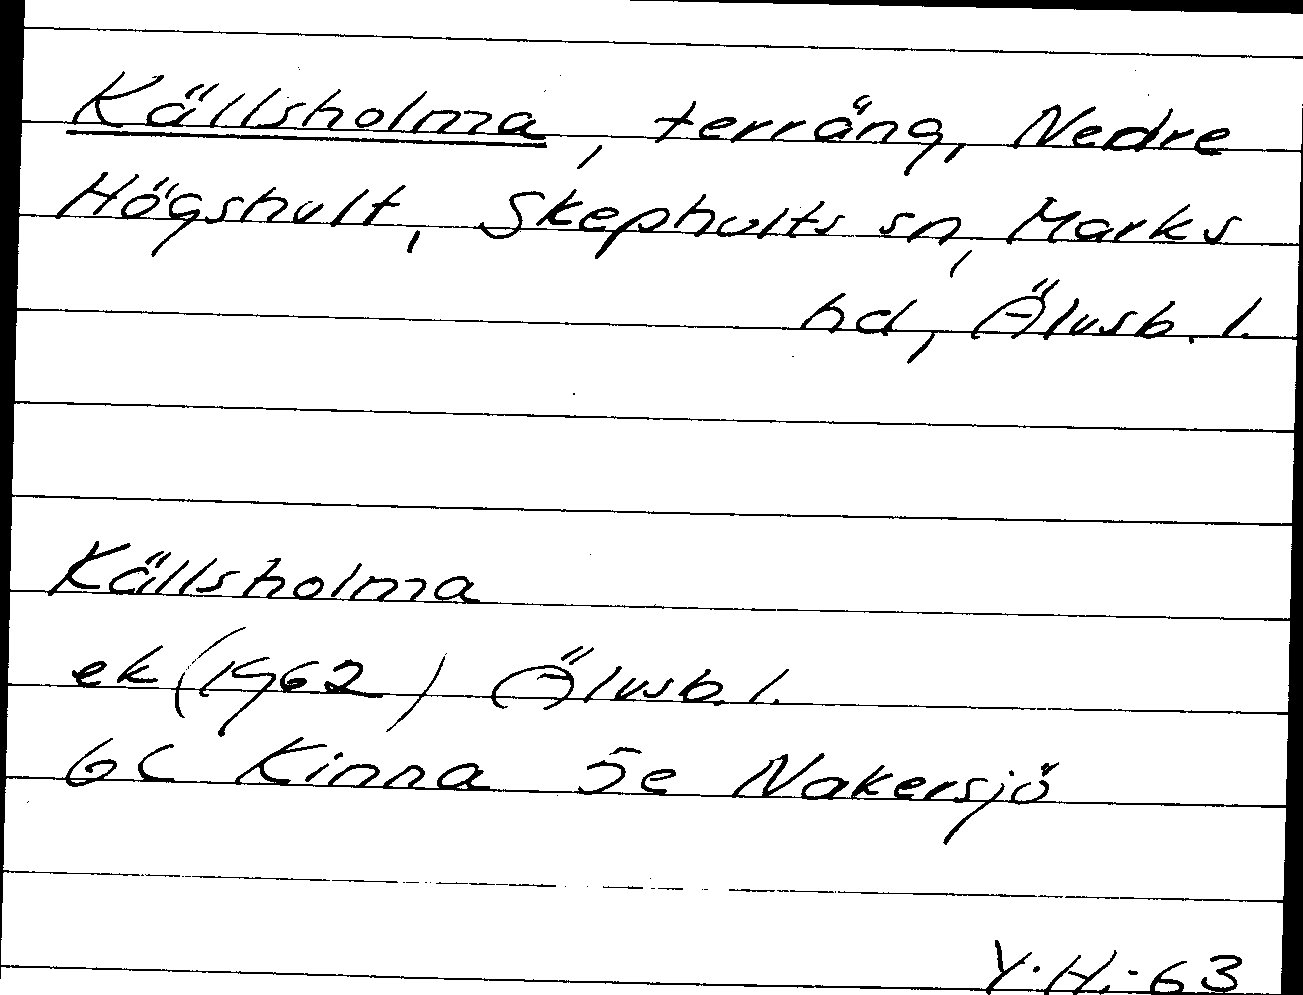 Källsholma, terräng, Nedre
Högshult, Skephults sn, Marks
hd, Älvsb. l.
Källsholma
ek (1962) Älvsb. l.
6C Kinna 5e Nakersjö
Y.H.-63